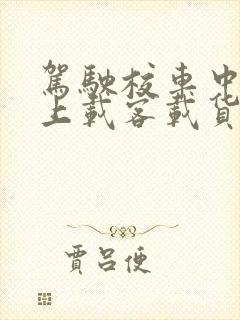 駕駛校中
上載客載貨
賈呂便